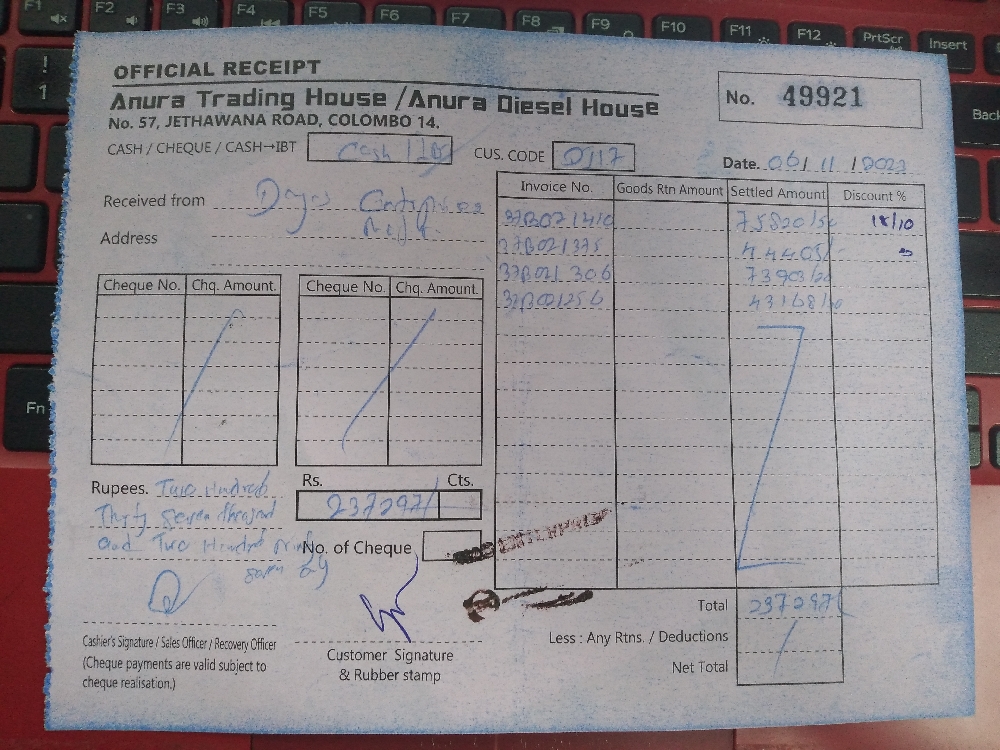 OFFICIAL RECEIPT
Anura Trading House / Anura Diesel House
No. 57, JETHAWANA ROAD, COLOMBO 14.
No. 49921
CASH / CHEQUE / CASH→IBT Cash
CUS. CODE D117
Date. 06/11/2023
Received from
Address
Invoice No. Goods Rtn Amount Settled Amount Discount %
37B021410 18/10
37B021375 44405/-
37B021306
37B021256
Cheque No. Chq. Amount. Cheque No. Chq. Amount.
Rupees. Two Hundred
Thirty Seven thousand
and Two Hundred ninty
seven
Rs. Cts.
237297/
No. of Cheque
ENTERPRISE
Total 237297/
Less : Any Rtns. / Deductions
Net Total
Cashier's Signature / Sales Officer / Recovery Officer
(Cheque payments are valid subject to
cheque realisation.)
Customer Signature
& Rubber stamp
F1 F2 F3 F4 F5 F6 F7 F8 F9 F10 F11 F12 PrtScr Insert
!
1
Back
Fn